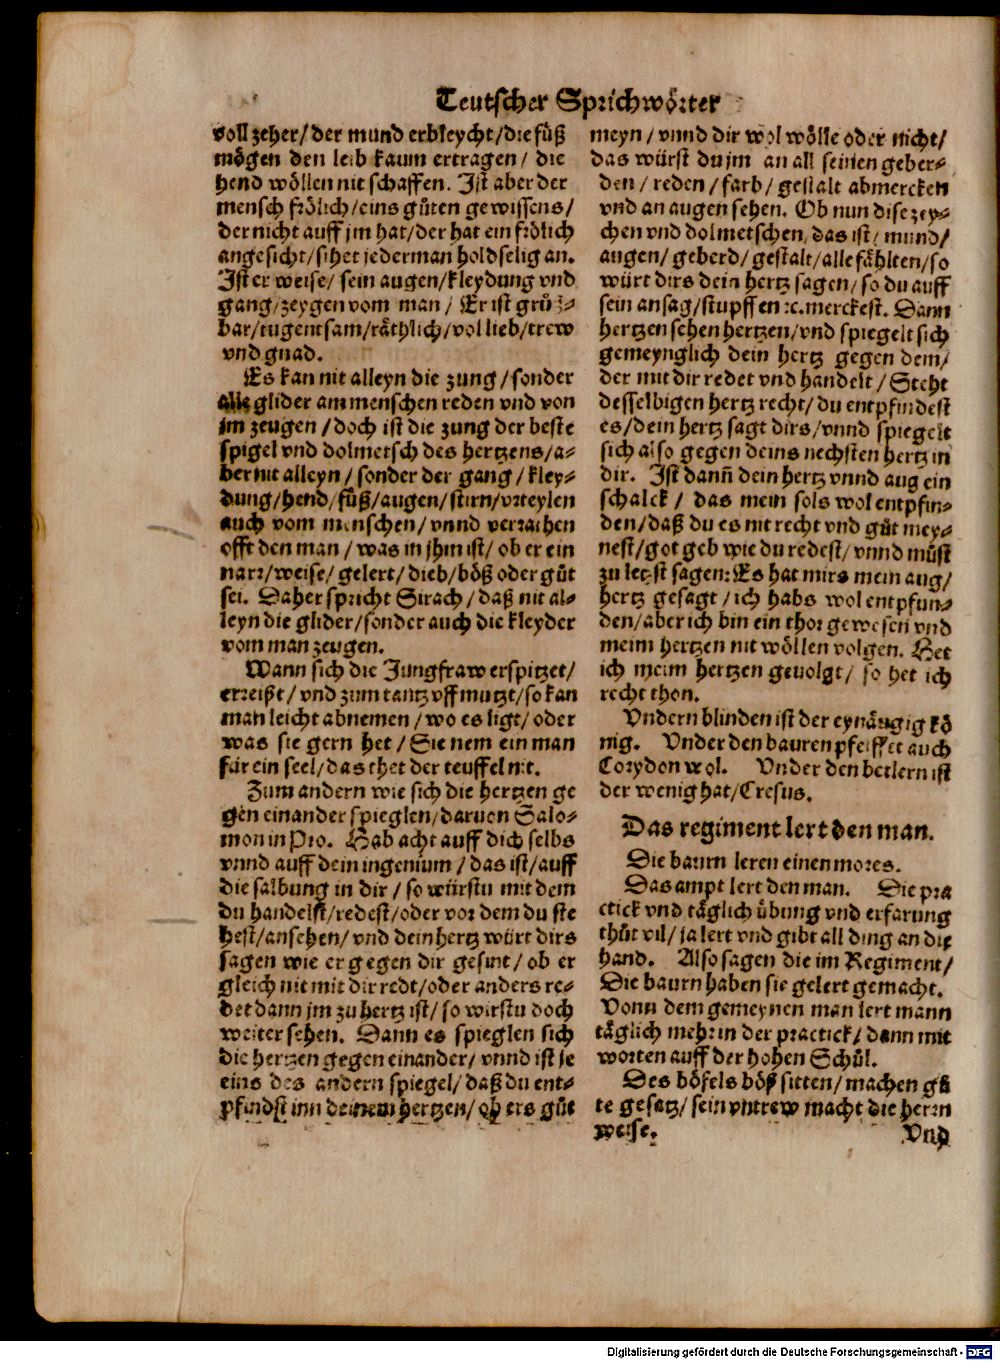 Teutscher Sprichwörter
voll zeher/ der mund erbleycht/ die füß
mögen den leib kaum ertragen/ die
hend wöllen nit schaffen. Ist aber der
mensch frölich/ eins gůten gewissens/
der nicht auff jm hat/ der hat ein frölich
angesicht/ sihet jederman holdselig an.
Ist er weise/ sein augen/ kleydung vnd
gang/ zeygen vom man/ Er ist grůz⸗
bar/ tugentsam/ räthlich/ vol lieb/ trew
vnd gnad.
Es kan nit alleyn die zung/ sonder
alle glider am menschen reden vnd von
jm zeugen/ doch ist die zung der beste
spigel vnd dolmetsch des hertzens/ a⸗
ber nit alleyn/ sonder der gang/ kley⸗
dung/ hend/ füß/ augen/ stirn/ vrteylen
auch vom menschen/ vnnd verrathen
offt den man/ was in jhm ist/ ob er ein
narr/ weise/ gelert/ dieb/ böß oder gůt
sei. Daher spricht Sirach/ daß nit al⸗
leyn die glider/ sonder auch die kleyder
vom man zeugen.
Wann sich die Jungfraw erspitzet/
erreißt/ vnd zum tantz vffmutzt/ so kan
man leicht abnemen/ wo es ligt/ oder
was sie gern het/ Sie nem ein man
für ein seel/ das thet der teuffel nit.
Zum andern wie sich die hertzen ge
gen einander spieglen/ daruon Salo⸗
mon in Pro. Hab acht auff dich selbs
vnnd auff dein ingenium/ das ist/ auff
die salbung in dir/ so würstu mit dem
du handelst/ redest/ oder vor dem du ste
hest/ ansehen/ vnd dein hertz würt dirs
sagen wie er gegen dir gesint/ ob er
gleich nit mit dir redt/ oder anders re⸗
det dann jm zu hertz ist/ so wirstu doch
weiter sehen. Dann es spieglen sich
die hertzen gegen einander/ vnnd ist je
eins des andern spiegel/ daß du ent⸗
pfindst inn deinem hertzen/ ob ers gůt
meyn/ vnnd dir wol wölle oder nicht/
das würst du jm an all seinen geber⸗
den/ reden/ farb/ gestalt abmercken
vnd an augen sehen. Ob nun dise zey⸗
chen vnd dolmetschen, das ist/ mund/
augen/ geberd/ gestalt/ alle fählten/ so
würt dirs dein hertz sagen/ so du auff
sein ansag/ stupffen ꝛc. merckest. Dann
hertzen sehen hertzen/ vnd spiegelt sich
gemeynglich dein hertz gegen dem/
der mit dir redet vnd handelt/ Steht
desselbigen hertz recht/ du entpfindest
es/ dein hertz sagt dirs/ vnnd spiegelt
sich also gegen deins nechsten hertz in
dir. Ist dañ dein hertz vnnd aug ein
schalck/ das mein sols wol entpfin⸗
den/ daß du es nit recht vnd gůt mey⸗
nest/ got geb wie du redest/ vnnd můst
zu letzst sagen: Es hat mirs mein aug/
hertz gesagt/ ich habs wol entpfun⸗
den/ aber ich bin ein thor gewesen vnd
meim hertzen nit wöllen volgen. Het
ich meim hertzen geuolgt/ so het ich
recht thon.
Vndern blinden ist der eynäugig kö
nig. Vnder den bauren pfeiffet auch
Corydon wol. Vnder den betlern ist
der wenig hat/ Cresus.
Das regiment lert den man.
Die baurn leren einen mores.
Das ampt lert den man. Die pra
ctick vnd täglich übung vnd erfarung
thůt vil/ ja lert vnd gibt all ding an die
hand. Also sagen die im Regiment/
Die baurn haben sie gelert gemacht.
Vonn dem gemeynen man lert mann
täglich mehr in der practick/ dann mit
worten auff der hohen Schůl.
Des böfels böß sitten/ machen gů
te gesatz/ sein vntrew macht die herrn
weise. Vnd
Digitalisierung gefördert durch die Deutsche Forschungsgemeinschaft - DFG